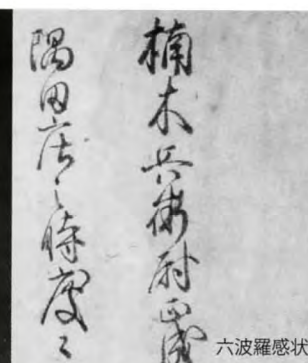 楠木兵衛尉正成
隅田庄之時度々
六波羅感状